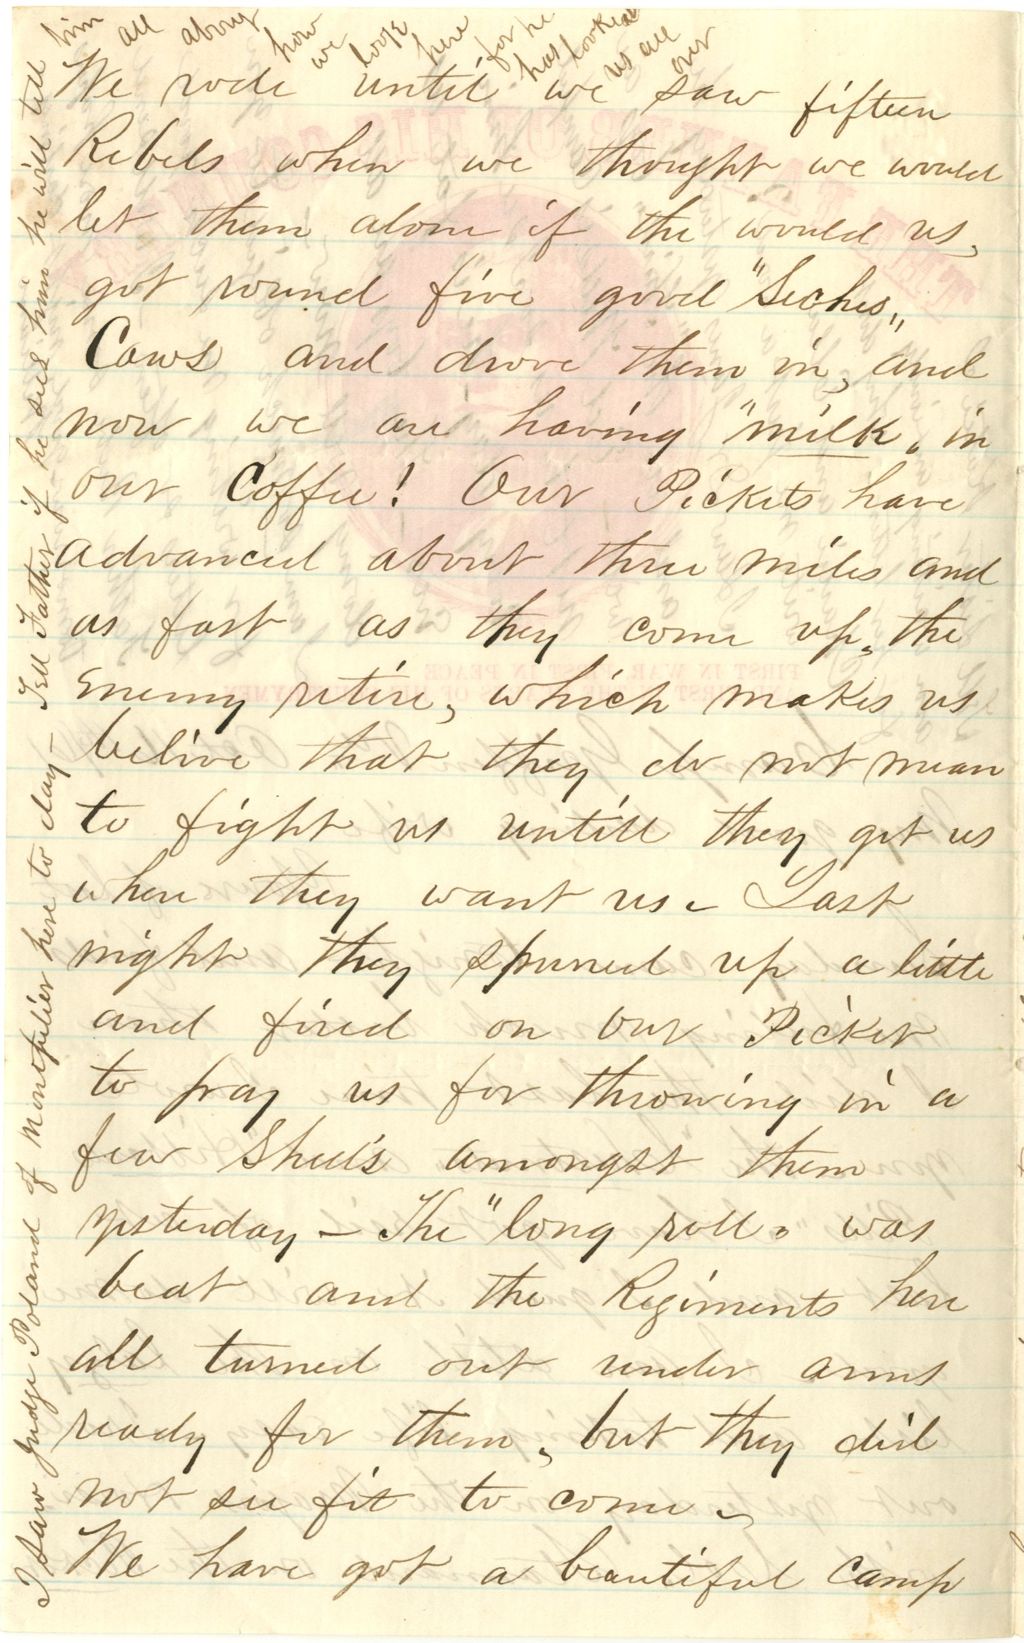 We rode until we saw fifteen
Rebels when we thought we would
let them alone if the would us,
got round five good "Seches"
Cows and drove them in, and
now we are having "milk" in
our Coffee! Our Pickets have
advanced about three miles and
as fast as they come up, the
enemy retire, which makes us
belive that they do not mean
to fight us untill they get us
where they want us - Last
night they spunked up a little
and fired on our Picket
to pay us for throwing in a
few Shells amongst them
yesterday - The "long roll" was
beat and the Regiments here
all turned out under arms
ready for them, but they did
not see fit to come -
We have got a beautiful camp
I saw Judge Poland of Montpelier here to day - Tell Father if he sees him he will tell
him all about how we look here for he has looked us all over
FIRST IN WAR, FIRST IN PEACE